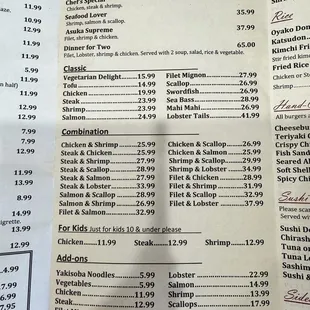 Chef's Special
Chicken, steak & shrimp.
Seafood Lover 35.99
Shrimp, salmon & scallop.
Asuka Supreme 37.99
Filet, shrimp & chicken.
Dinner for Two 65.00
Filet, shrimp & chicken. Served with 2 soup, salad, rice & vegetable.
Classic
Vegetarian Delight 15.99 Filet Mignon 27.99
Tofu 14.99 Scallop 26.99
Chicken 19.99 Swordfish 26.99
Steak 23.99 Sea Bass 28.99
Shrimp 23.99 Mahi Mahi 26.99
Salmon 23.99 Lobster Tails 41.99
Combination
Chicken & Shrimp 25.99 Chicken & Scallop 26.99
Steak & Chicken 25.99 Chicken & Salmon 25.99
Steak & Shrimp 27.99 Shrimp & Scallop 29.99
Steak & Scallop 28.99 Shrimp & Lobster 34.99
Steak & Salmon 27.99 Filet & Chicken 28.99
Steak & Lobster 33.99 Filet & Shrimp 31.99
Salmon & Scallop 28.99 Filet & Scallop 32.99
Salmon & Shrimp 26.99 Filet & Lobster 37.99
Filet & Salmon 32.99
For Kids Just for kids 10 & under please
Chicken 11.99 Steak 12.99 Shrimp 12.99
Add-ons
Yakisoba Noodles 5.99 Lobster 22.99
Vegetables 5.99 Salmon 14.99
Chicken 11.99 Shrimp 13.99
Steak 12.99 Scallops 17.99
11.99
11.99
5.99
11.99
half)
11.99
12.99
12.99
7.99
7.99
11.99
13.99
8.99
14.99
13.99
12.99
Rice
Oyako Don
Katsudon
Kimchi Fri
Stir fried kim
Fried Rice
Chicken or Ste
Shrimp
Hand-
All burgers
Cheesebu
Teriyaki C
Crispy Ch
Fish Sand
Seared Al
Soft Shell
Spicy Chi
Sushi
Please sca
Served with
Sushi De
Chirash
Tuna o
Tuna L
Sashim
Sushi
Sides